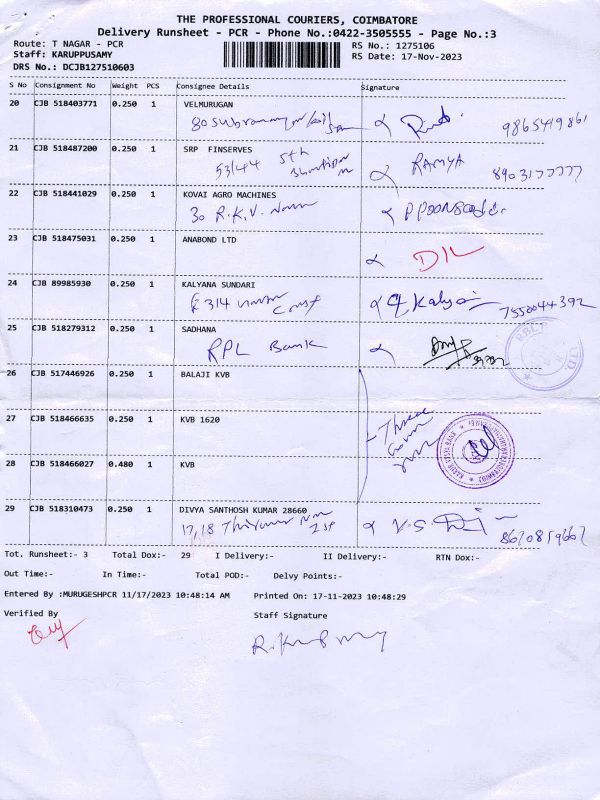 THE PROFESSIONAL COURIERS, COIMBATORE
Delivery Runsheet - PCR - Phone No.:0422-3505555 - Page No.:3
Route: T NAGAR - PCR RS No.: 1275106
Staff: KARUPPUSAMY RS Date: 17-Nov-2023
DRS No.: DCJB127510603
S No Consignment No Weight PCS Consignee Details Signature
20 CJB 518403771 0.250 1 VELMURUGAN
80 9865419861
21 CJB 518487200 0.250 1 SRP FINSERVES
53/44 5th RAMYA 8903177777
22 CJB 518441029 0.250 1 KOVAI AGRO MACHINES
30 R.K.V.
23 CJB 518475031 0.250 1 ANABOND LTD
24 CJB 89985930 0.250 1 KALYANA SUNDARI
E 314 7550044392
25 CJB 518279312 0.250 1 SADHANA
RPL Bank
26 CJB 517446926 0.250 1 BALAJI KVB
27 CJB 518466635 0.250 1 KVB 1620
28 CJB 518466027 0.480 1 KVB
29 CJB 518310473 0.250 1 DIVYA SANTHOSH KUMAR 28660
17,18 V.S.
Tot. Runsheet:- 3 Total Dox:- 29 I Delivery:- II Delivery:- RTN Dox:-
Out Time:- In Time:- Total POD:- Delvy Points:-
Entered By :MURUGESHPCR 11/17/2023 10:48:14 AM Printed On: 17-11-2023 10:48:29
Verified By Staff Signature